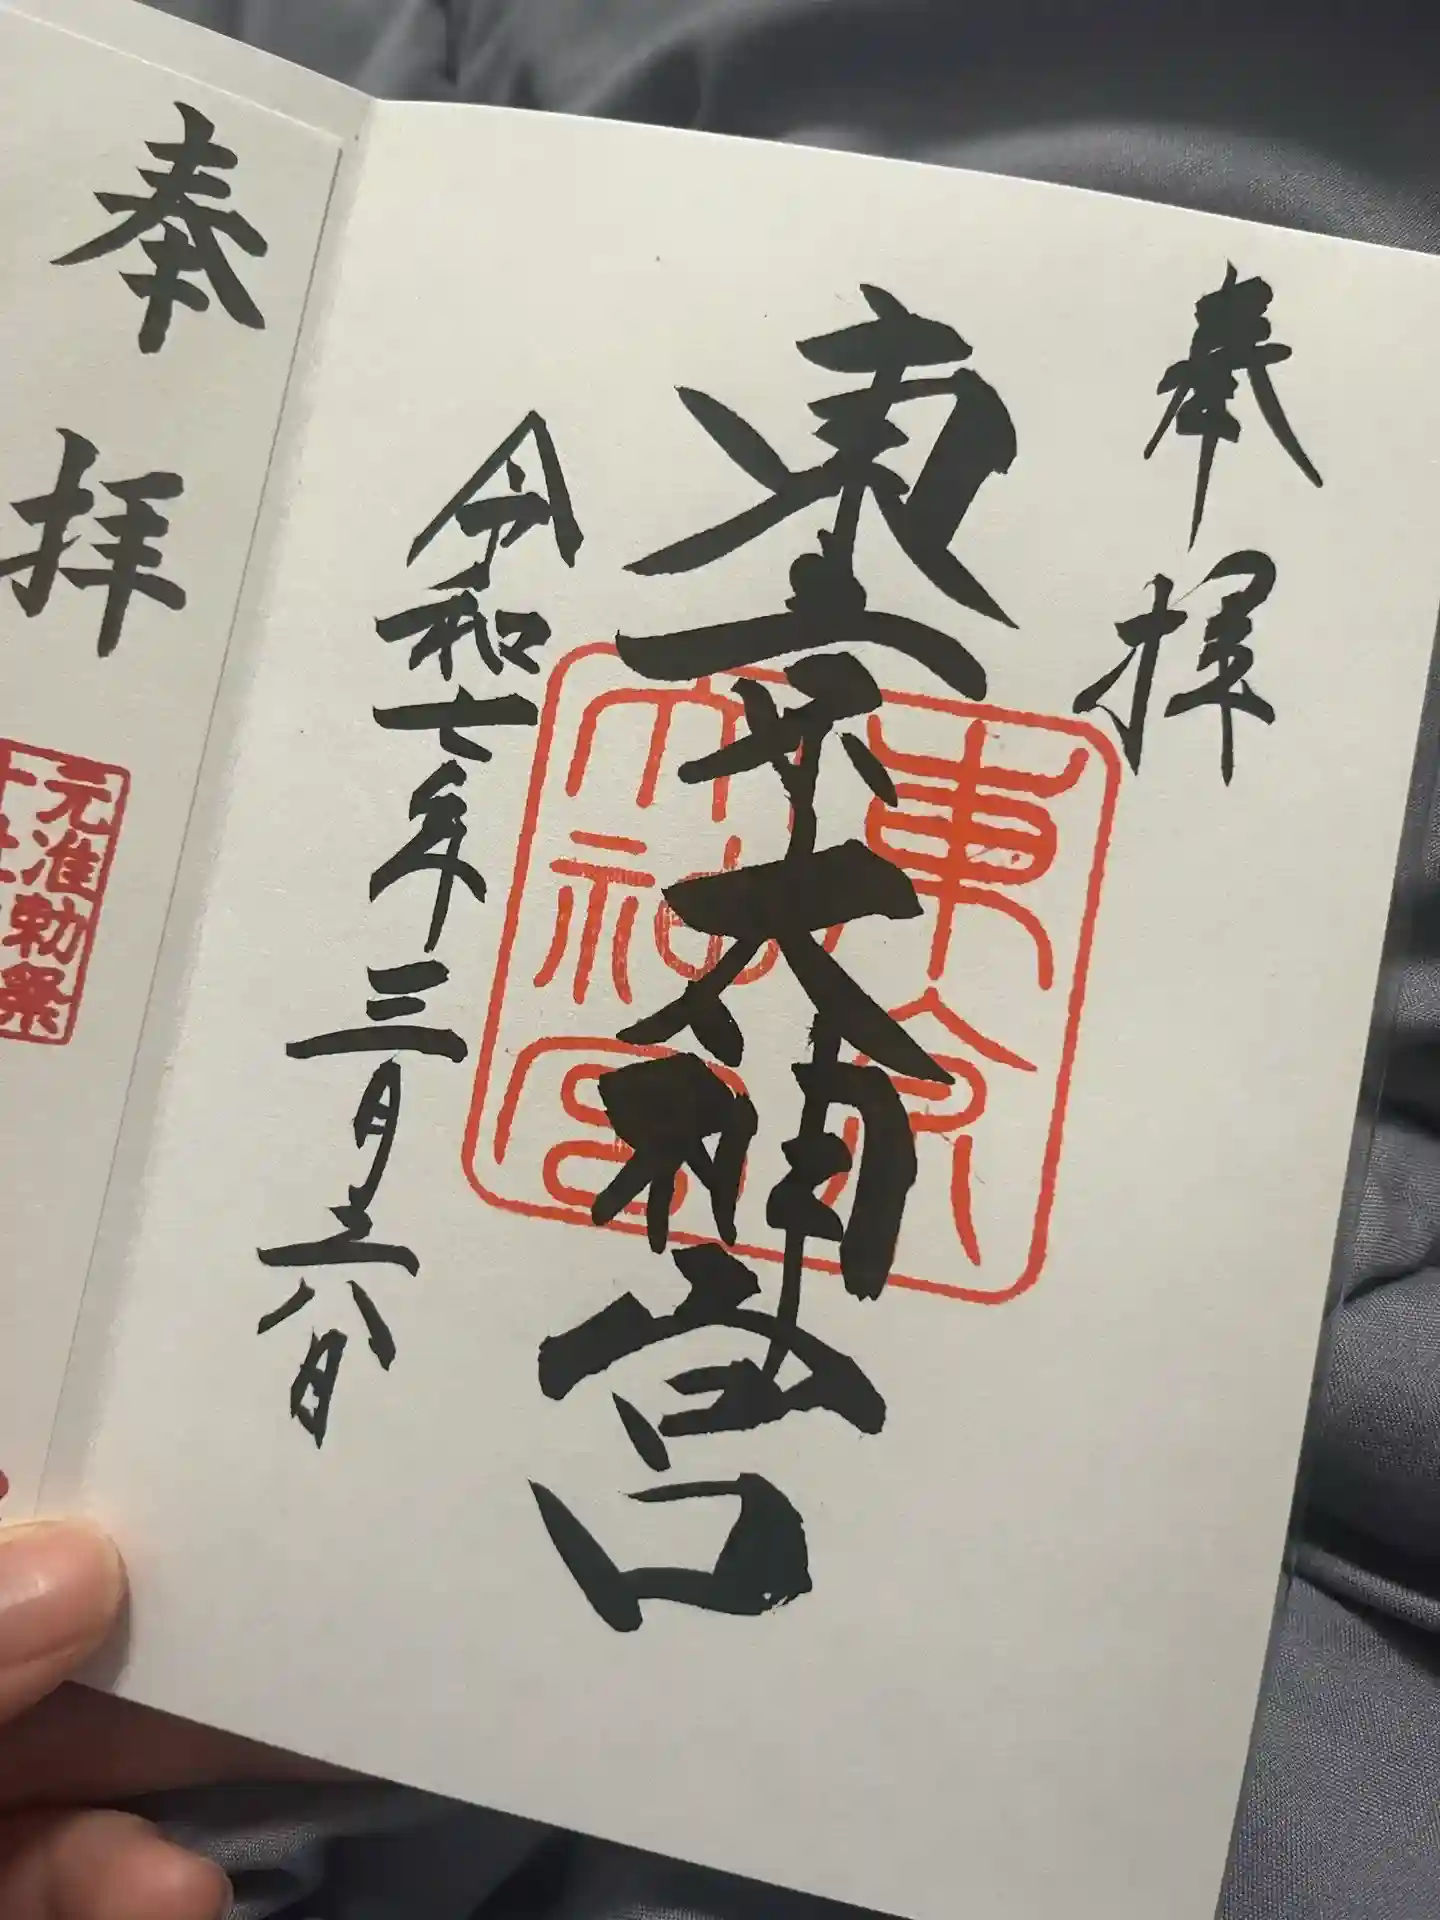 奉拝
東京大神宮
東京大神宮
令和七年三月二六日
奉拝
元准勅祭